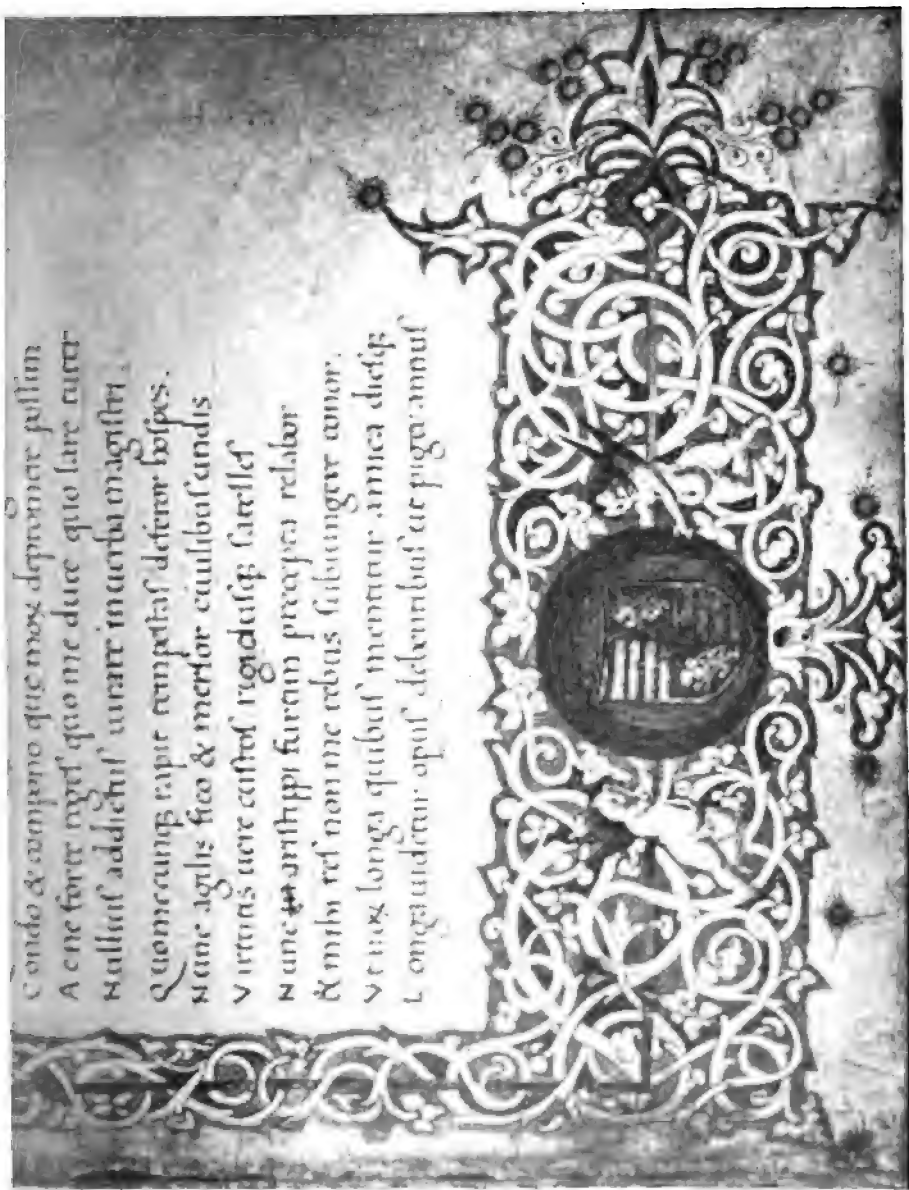 Condo & compono que mox depromere possim
Ac ne forte roges quo me duce quo lare tuter
Nullius addictus iurare in uerba magistri.
Quomecunqꝫ rapit tempestas deferor hospes.
Nunc agilis fio & mersor ciuilibus undis
Virtutis uere custos rigidusqꝫ satelles
Nunc aristippi furtim precepta relabor
Et mihi res non me rebus subiungere conor.
Vt nox longa quibus mentitur amica diesqꝫ
Longa uidetur opus debentibus ut piger annus